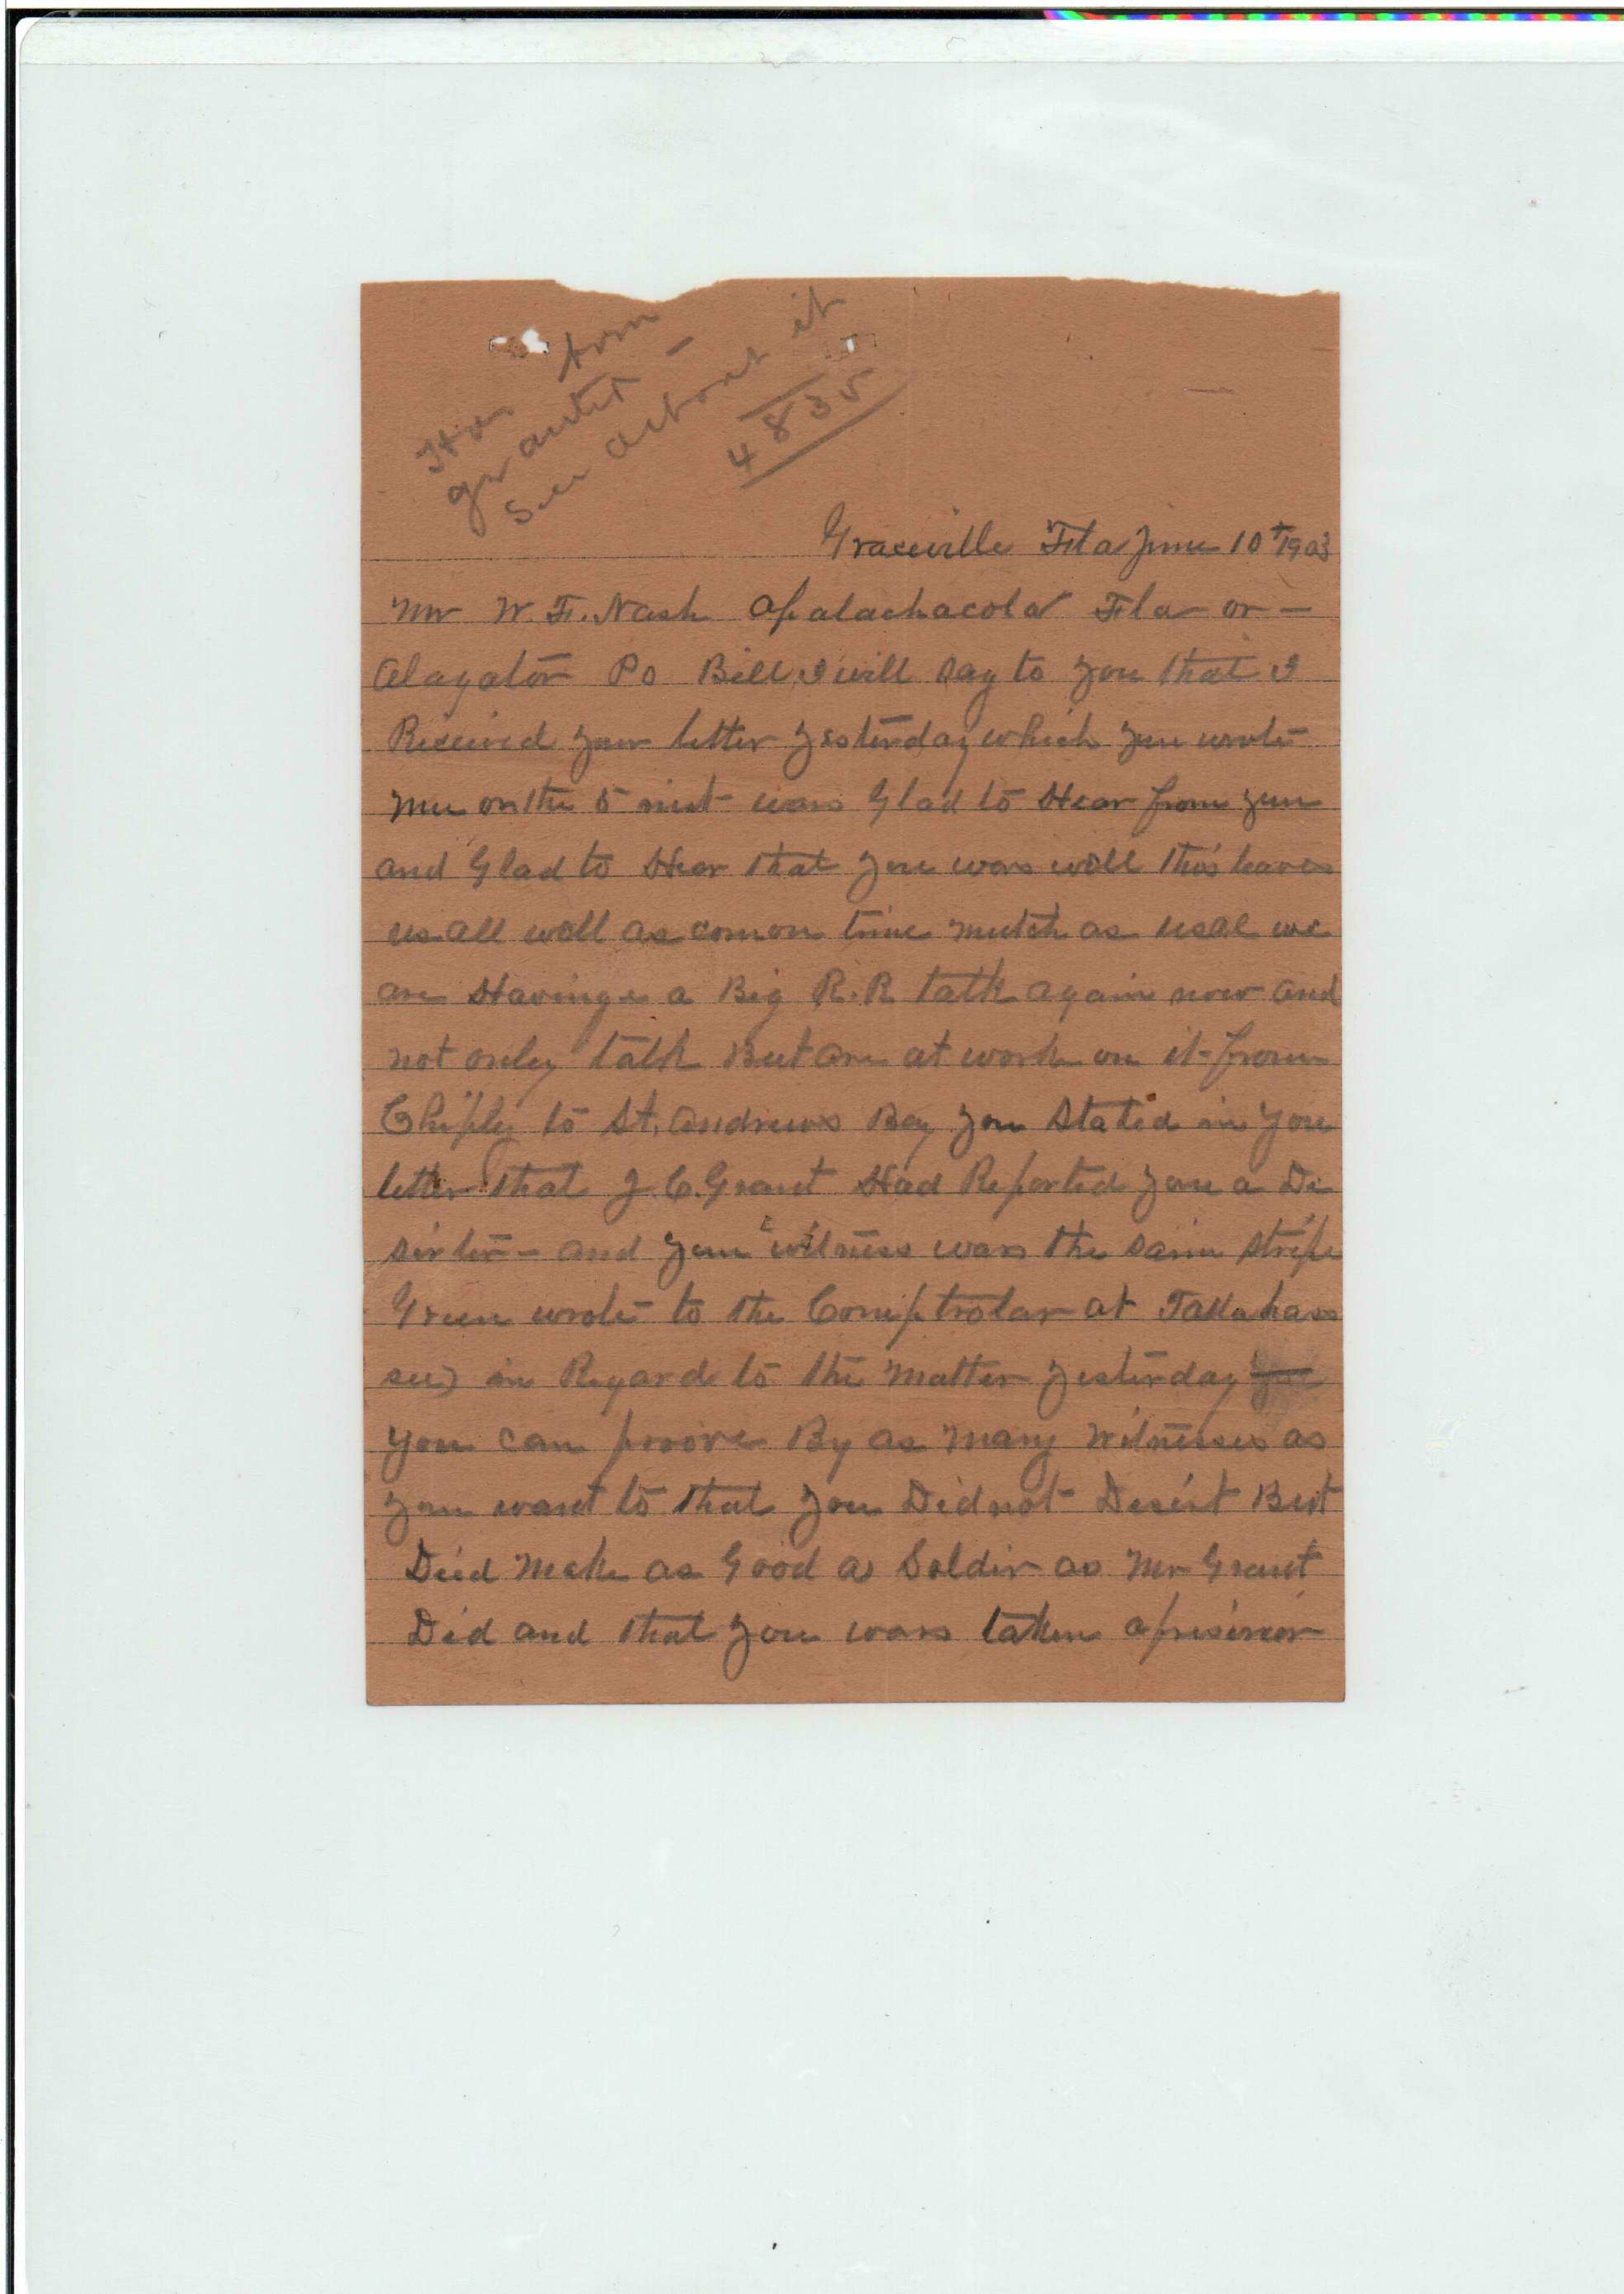 Has been
granted –
See about it
4835
Graceville Fla June 10th 1903
Mr W. F. Nash Apalachacola Fla or –
Alagator Po Bill I will say to you that I
Received your letter yesterday which you wrote
me on the 5 inst was Glad to Hear from you
and Glad to Hear that you was well this leaves
us all well as comon time mutch as usal we
are Having a Big R. R talk again now and
not only talk But are at work on it from
Chiply to St. Andrews Bay you Stated in you
letter that J. C. Grant Had Reported you a De
sirter – and you witness was the same stripe
Green wrote to the Comptrolar at Tallahass
see in Regard to the matter yesterday
you can proove By as many witnesses as
you want to that you Did not Desert But
Did make as Good a Soldir as Mr Grant
Did and that you was taken a prisinor